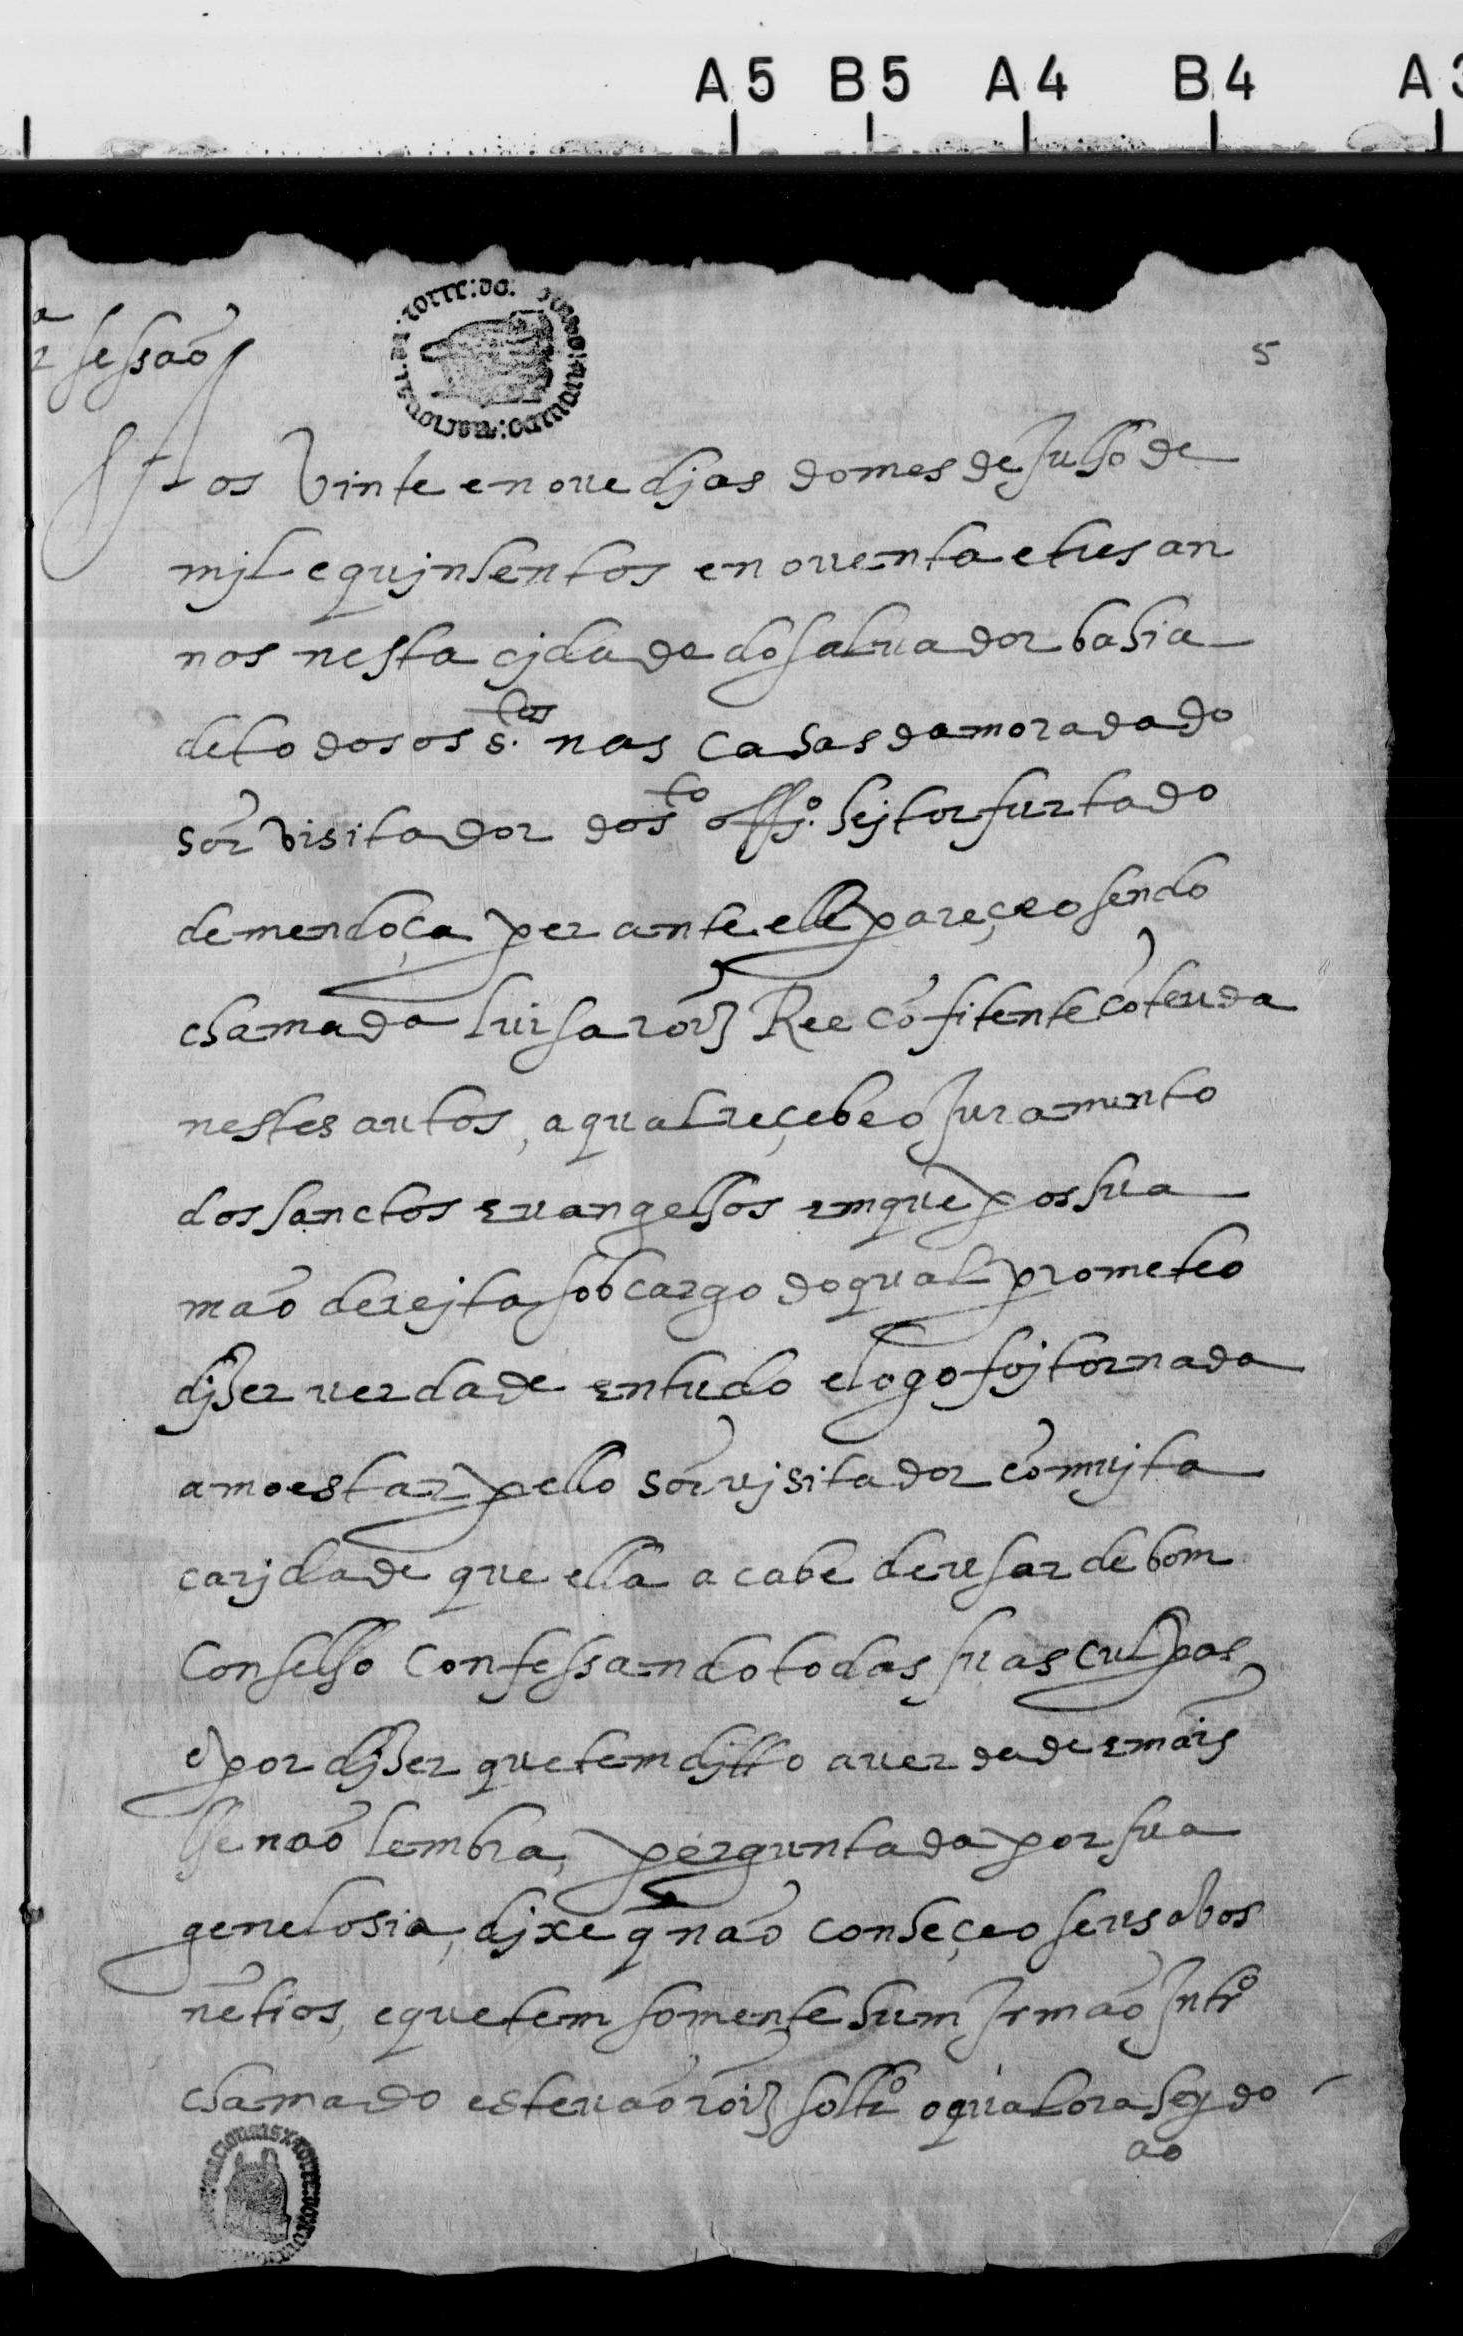 A5 B5 A4 B4 A3
5
sessaõ
Aos vinte e noue djas do mes de Julho de
mjl e qujnhentos e nouenta e tres an
nos nesta cjdade do saluador bahia
de todos os s.tos nas casas da morada do
sõr visitador do sto offj.º hejtor furtado
de mendoça perante elle pareçeo sendo
chamada luisa roiz Ree cõfitente cõteuda
nestes autos, a qual reçebeo Juramento
dos sanctos euangelhos em que pos sua
maõ derejta sob cargo do qual prometeo
djzer uerdade em tudo e logo foj tornada
amoestar pello sõr vjsitador cõ mujta
carjdade que ella acabe de usar de bom
conselho confessando todas suas culpas
e por djzer que tem djtto a uerdade e mais
lhe naõ lembra, perguntada por sua
genelosia, djxe q̃ naõ conheçeo seus abos
nẽ tios, e que tem somente hum Irmaõ Intrº
chamado esteuaõ roiz soltrº o qual ora he jdo
ao